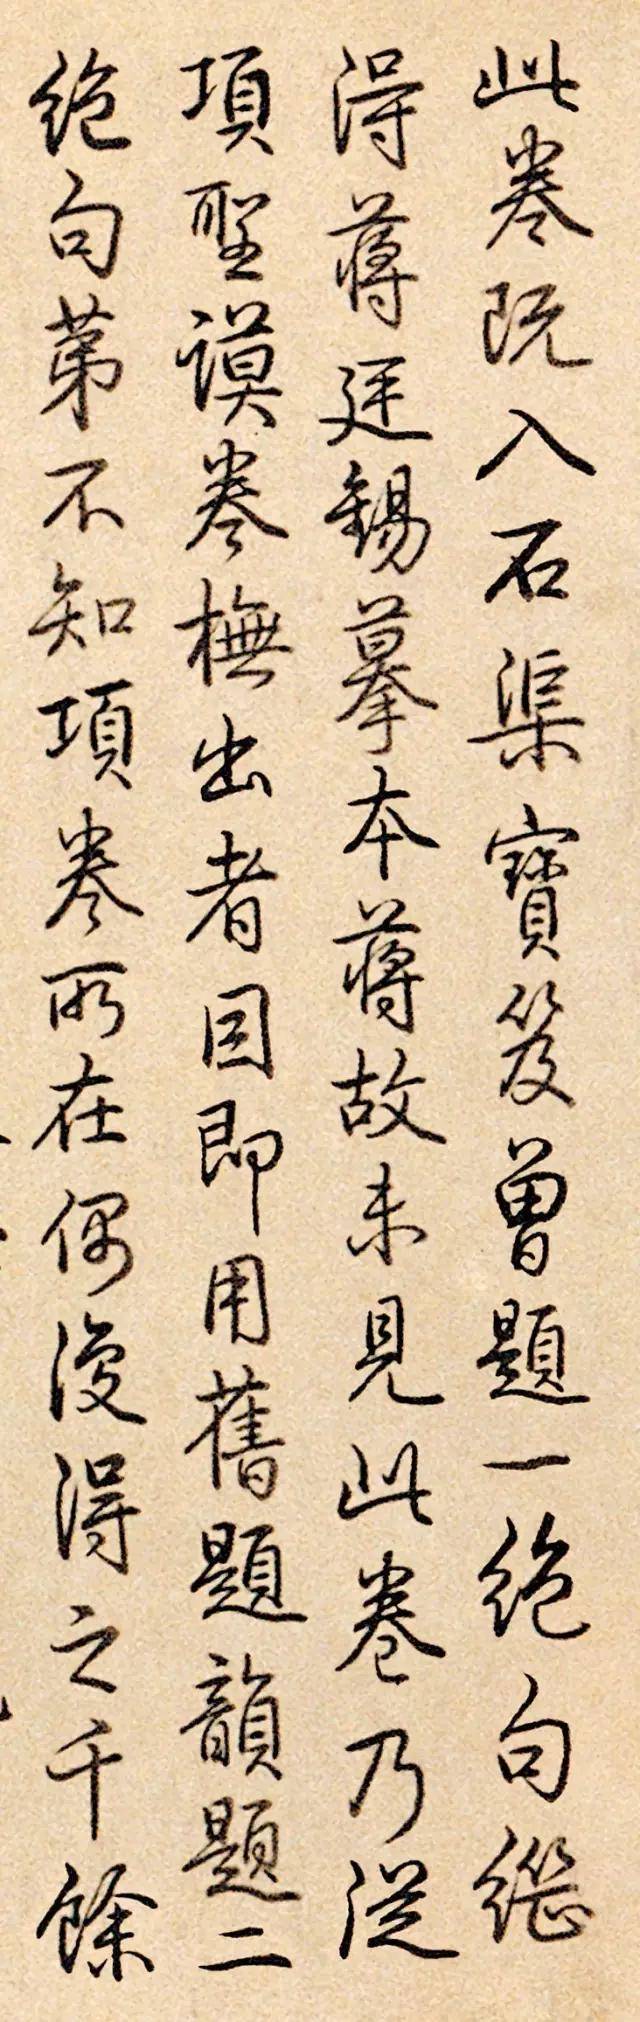 此卷既入石渠寶笈曾題一絕句繼
得蔣廷錫摹本蔣故未見此卷乃從
項聖謨卷橅出者因即用舊題韻題二
絕句第不知項卷所在偶復得之千餘